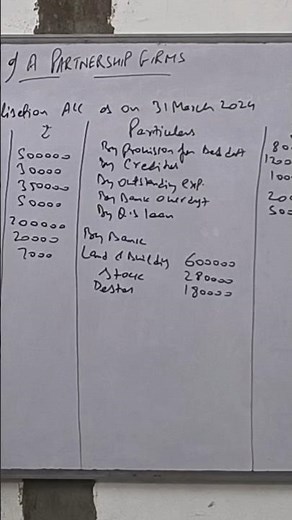 of A PARTNERSHIP FIRMS
lisation A/c as on 31 March 2024
₹ Particulars
500000 By Provision for Bad debt 80
30000 By Creditor 1200
350000 By Outstanding exp. 100
50000 By Bank overdraft 200
By Q.s loan 500
200000
20000 By Bank
7000 Land & Building 600000
Stock 280000
Debtor 180000